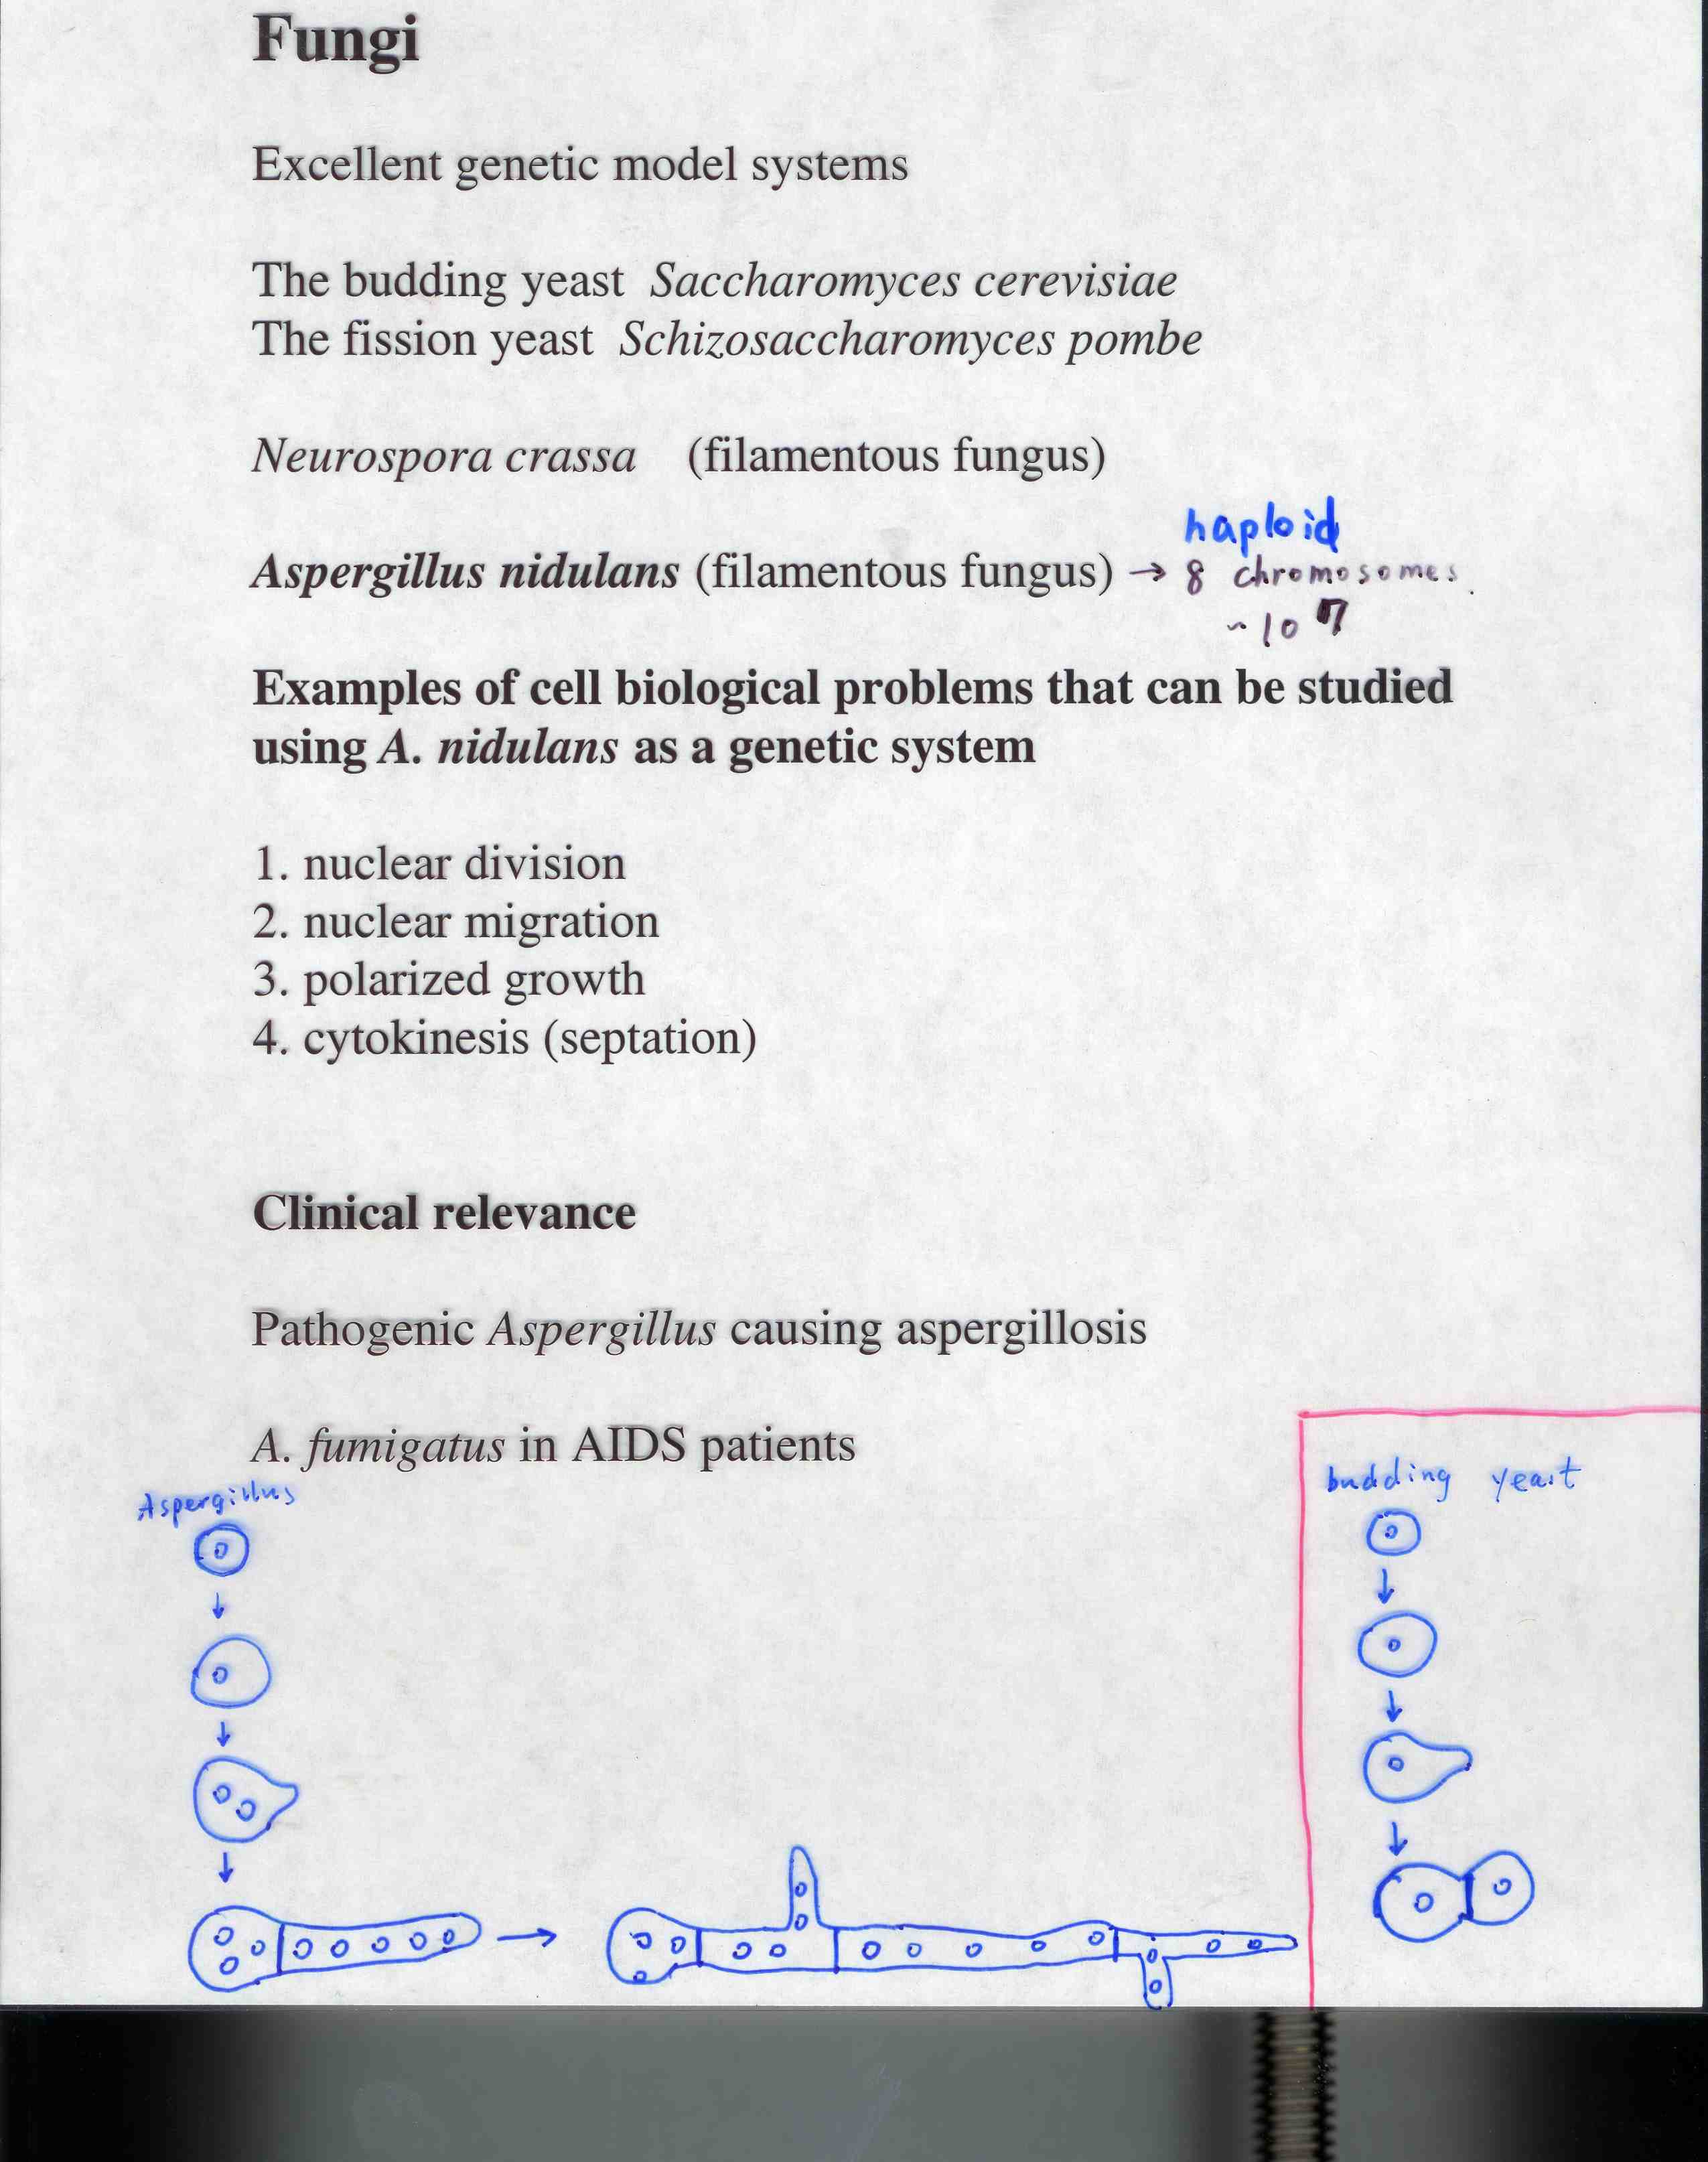 Fungi
Excellent genetic model systems
The budding yeast Saccharomyces cerevisiae
The fission yeast Schizosaccharomyces pombe
Neurospora crassa (filamentous fungus)
haploid
Aspergillus nidulans (filamentous fungus) → 8 chromosomes
~10⁷
Examples of cell biological problems that can be studied
using A. nidulans as a genetic system
1. nuclear division
2. nuclear migration
3. polarized growth
4. cytokinesis (septation)
Clinical relevance
Pathogenic Aspergillus causing aspergillosis
A. fumigatus in AIDS patients
Aspergillus
budding yeast